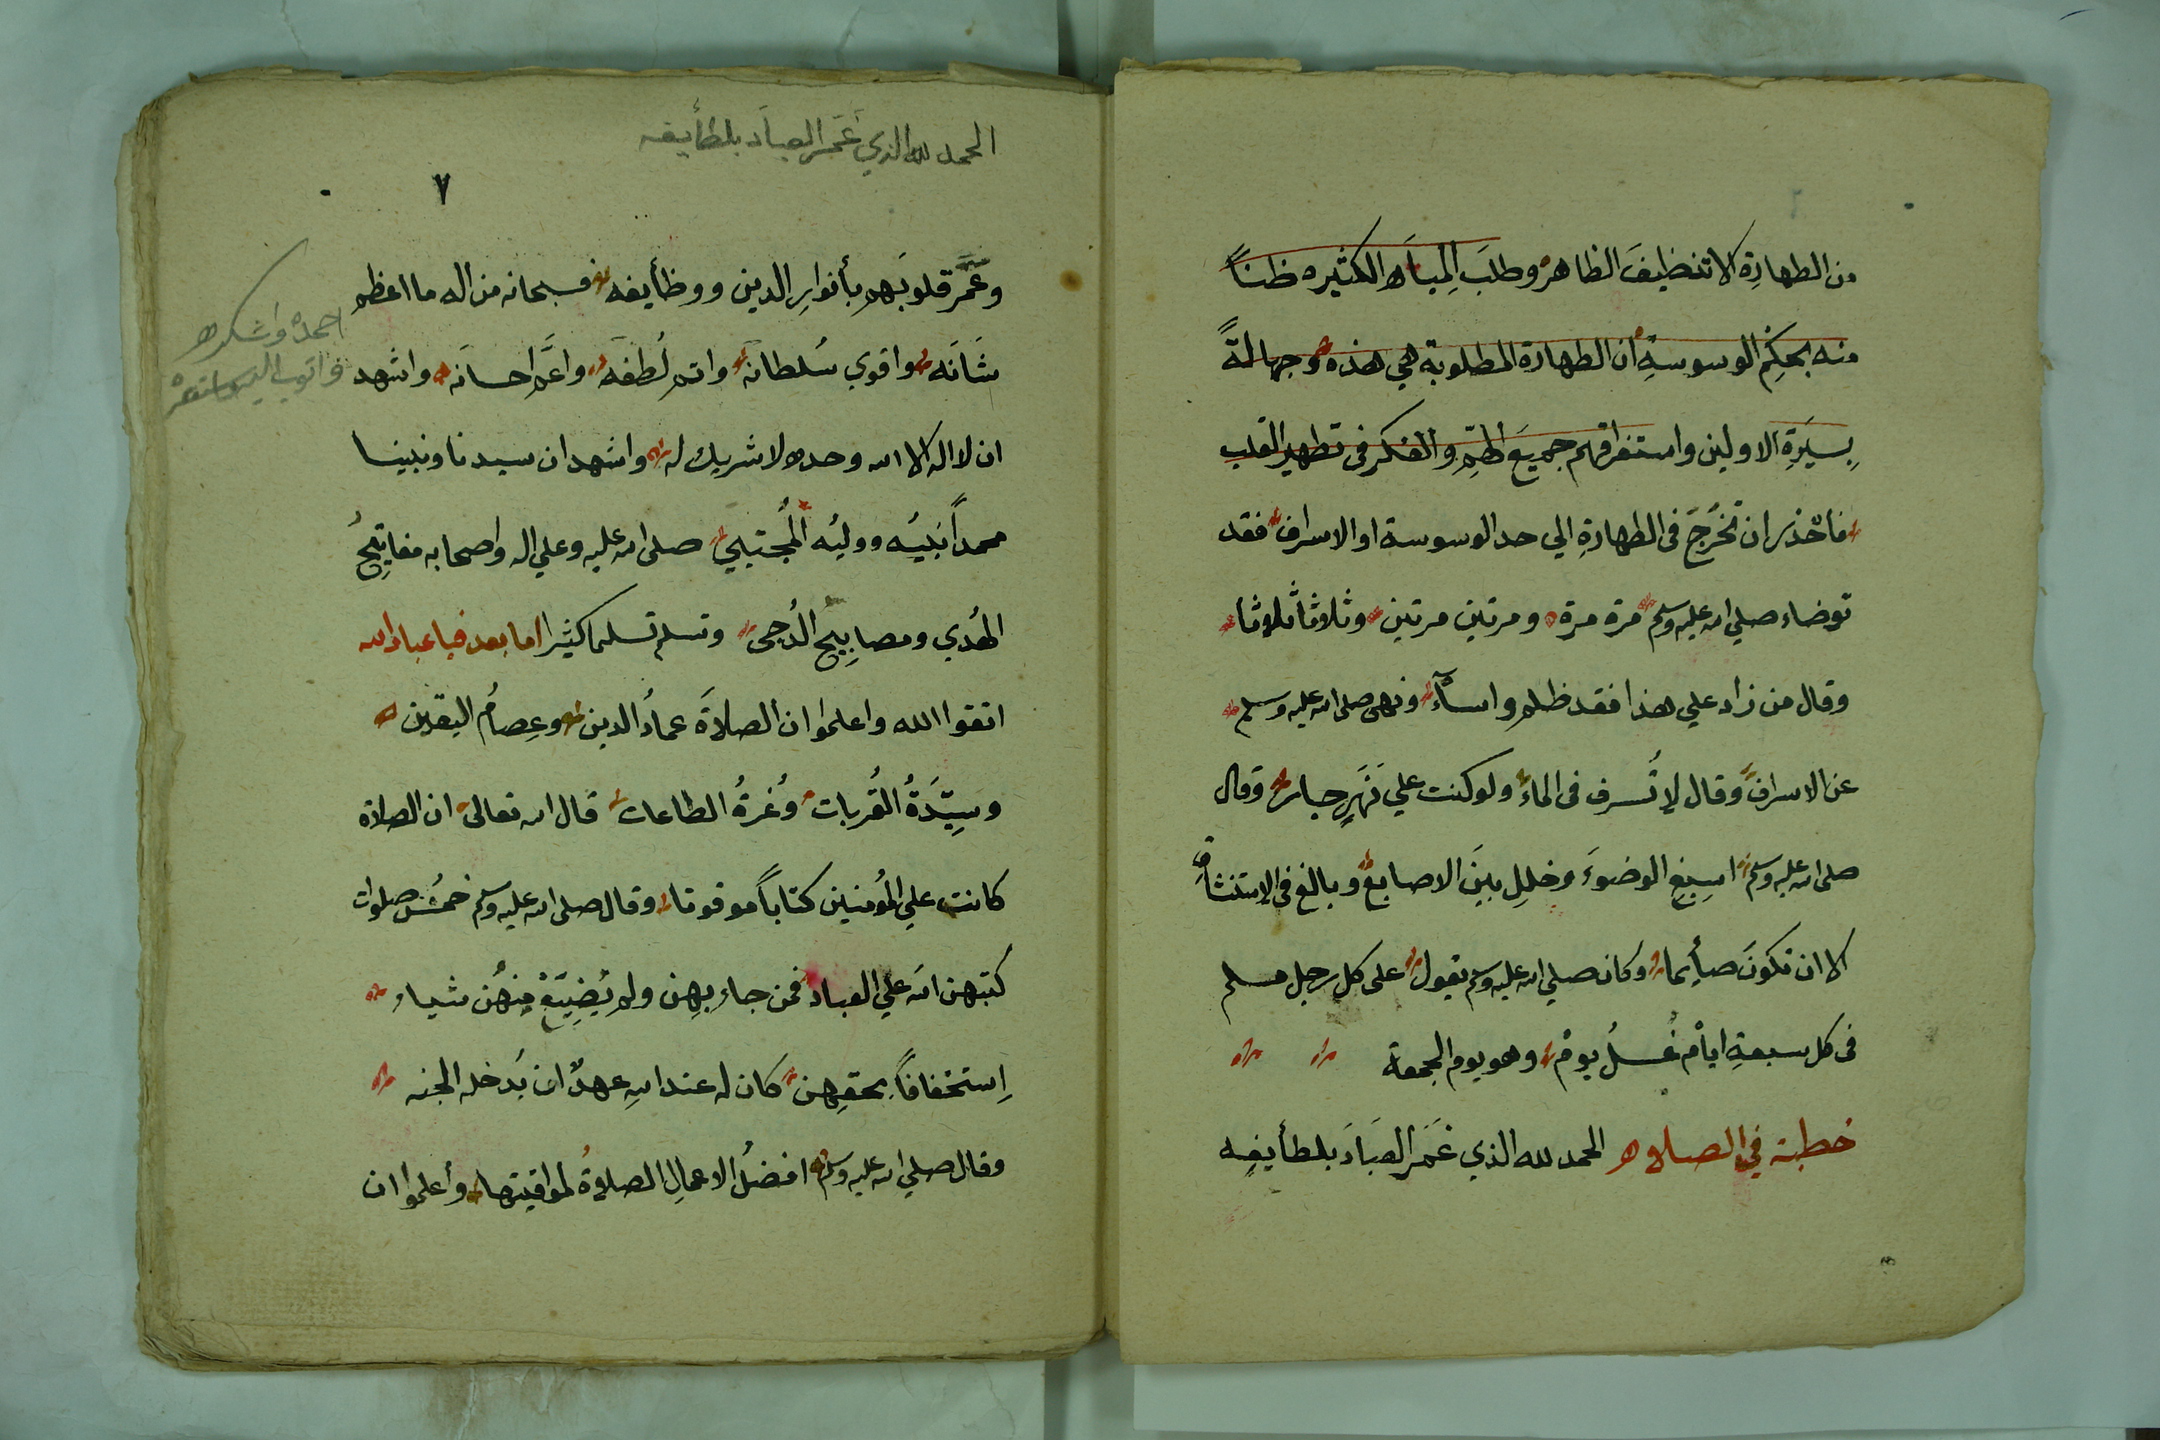 من الطهارةِ الا تنظيفَ الظاهر وطلبَ المِياَه الكثيره ظناً
منه بحكِم الوسوسةِ ان الطهارة المطلوبة هي هذه وجهالةً
بِسيَرةِ الاولين واستغراقهم جميعَ الهمّ والفكر في تطهير القلب
فاحْذر ان تَخُرجَ في الطهارةِ الي حد الوسوسة او الاسراف فقد
توضاء صلي الله عليه وسلم مرة مرة ومرتين مرتين وثلاوثا ثلاوثا
وقال من زاد علي هذا فقد ظلم واسآء ونهى صلى الله عليه وسلم
عن الاسراف وقال لا تُسرف في الماء ولو كنت علي نَهَرٍ جار وقال
صلى الله عليه وسلم اسبِغِ الوضوَء وخلِلِ بينَ الاصابع وبالغ في الاستنشاق
الا ان تكونَ صأيما وكان صلي الله عليه وسلم يقول على كل رجل مسلم
في كل سبعةِ ايامْ غُسلُ يومْ وهو يوم الجمعة
خطبة في الصلاوه الحمد لله الذي غَمَر العَبادَ بلطأيفِه
الحمد لله الذي غَمَر العبادَ بلطأيفه
٧
وعَمَّر قلوبَهم بأنوارِ الدين ووظأيفه فسبحانه من اله ما اعظم
شَانَه واقوي سُلطانَه واتم لُطفَه واعَّم احسانَه واشهد
احمده واشكره
واتوب اليه واستغفره
ان لا اله الا الله وحده لا شريك له واشهد ان سيدنا ونبينا
محمداً نبيُه ووليُه المُجتبي صلى الله عليه وعلي اله واصحابه مفاتِيحُ
الهُدي ومصابِيح الدُجى وتسلم تسلما كثيرا اما بعد فيا عباد الله
اتقوا الله واعلموا ان الصلاةَ عمادُ الدين وعِصامُ اليقين
وسِيّدَةُ القُربات وُغرةُ الطاعات قال الله تعالى ان الصلاة
كانت علي المُومنين كتاباً موقوتا وقال صلى الله عليه وسلم خمسُ صلوات
كتبهن الله علي العباد فمن جاء بِهن ولم يُضِيّعْ مِنهُن شياء
اِستخفافاً بحقِهن كان له عند اللهِ عهدٌ ان يُدخله الجنه
وقال صلي الله عليه وسلم افضلُ الاعمالِ الصلاوةُ لمواقيتها وأعلموا ان